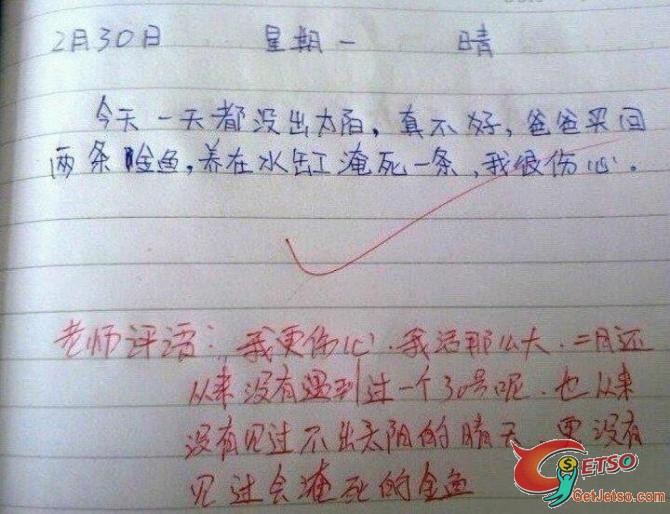 2月30日 星期一 晴
今天一天都没出太阳，真不好，爸爸买回
两条金鱼，养在水缸淹死一条，我很伤心。
老师评语：我更伤心．我活那么大．二月还
从来没有遇到过一个30号呢．也从来
没有见过不出太阳的晴天．更没有
见过会淹死的金鱼
GETSO
GetJetso.com